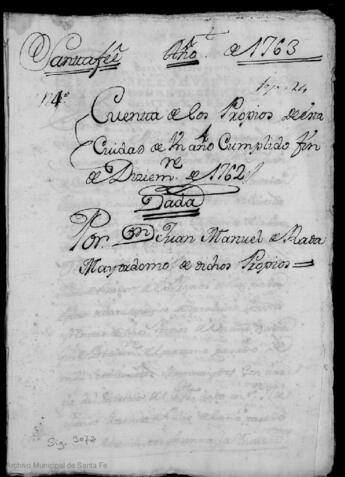 Santafeé Año de 1763
N 4º
Cuenta de los Propios de esta
Ciudad de Un año Cumplido fin
de Diziem.re de 1762
Dada
Por Dn Juan Manuel de Rada
Mayordomo de dichos Propios
Sig. 3077
Archivo Municipal de Santa Fe